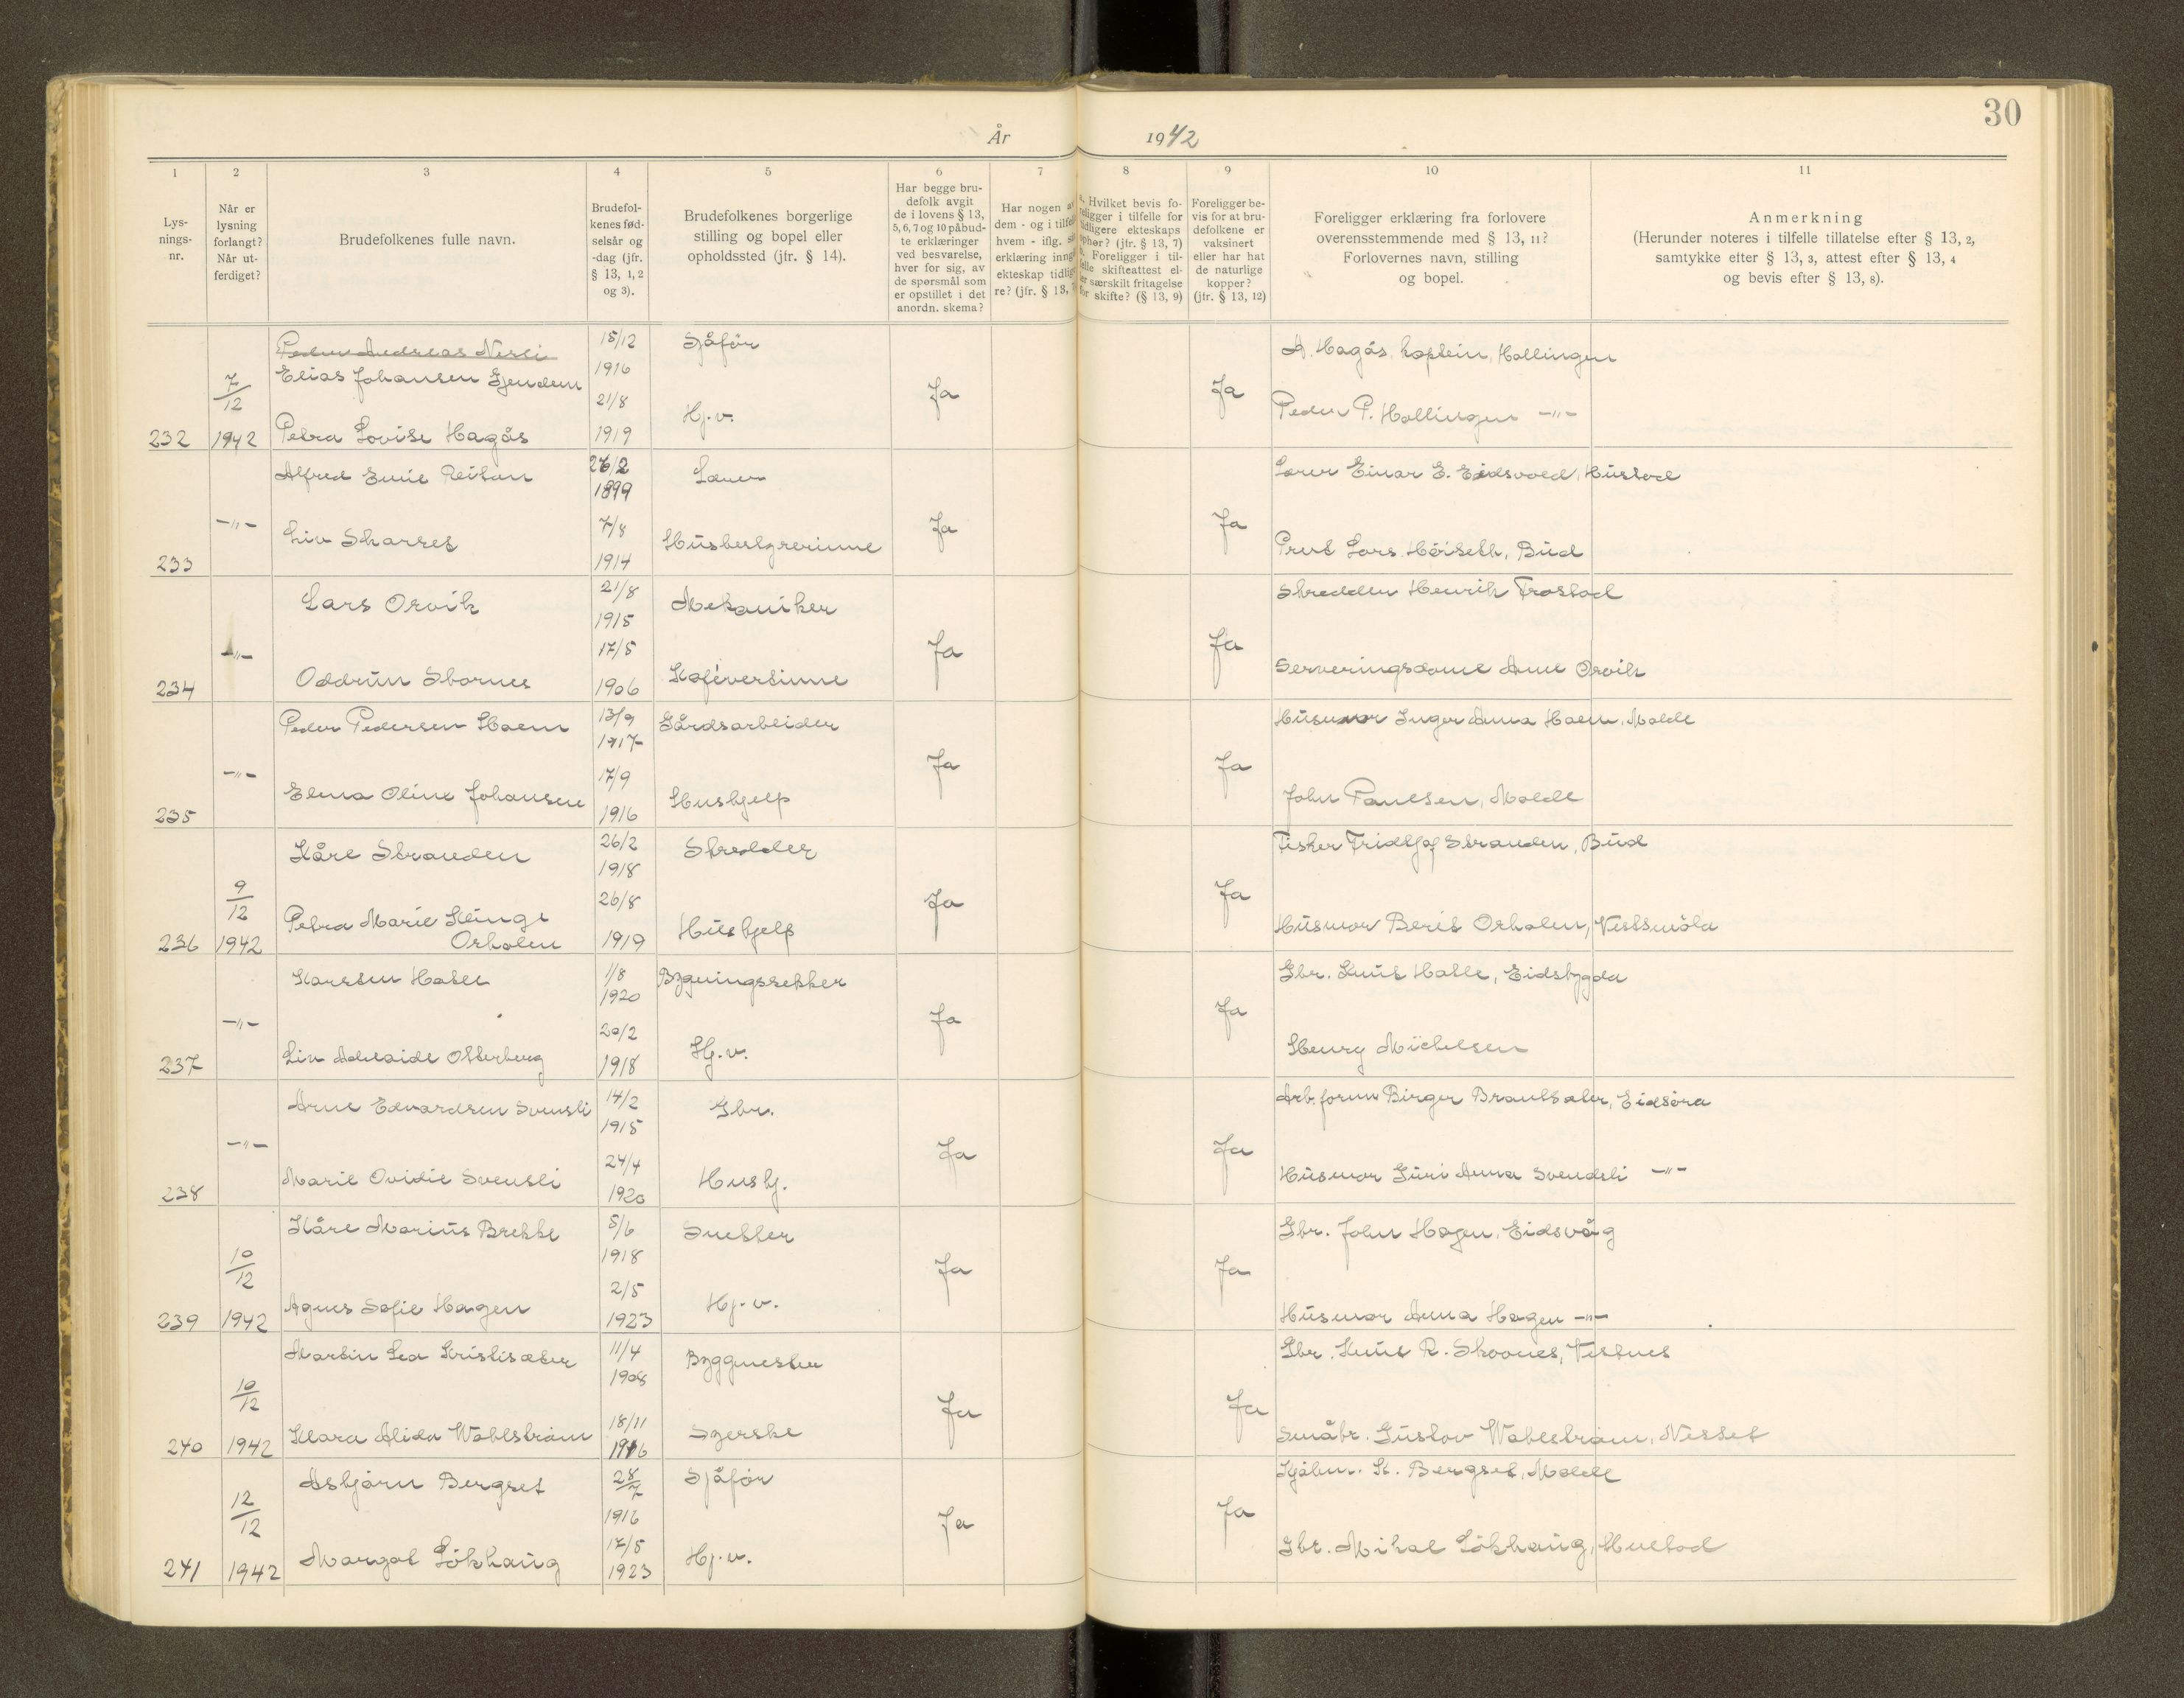 30
År 1942
1 2 3 4 5 6 7 8 9 10 11
Lys-
nings-
nr.
Når er
lysning
forlangt?
Når ut-
ferdiget?
Brudefolkenes fulle navn.
Brudefol-
kenes fød-
selsår og
-dag (jfr.
§ 13, 1, 2
og 3).
Brudefolkenes borgerlige
stilling og bopel eller
opholdssted (jfr. § 14).
Har begge bru-
defolk avgit
de i lovens § 13,
5, 6, 7 og 10 påbud-
te erklæringer
ved besvarelse,
hver for sig, av
de spørsmål som
er opstillet i det
anordn. skema?
Har nogen av
dem - og i tilfelle
hvem - iflg.
erklæring inngå
ekteskap tidlige
re? (jfr. § 13,
Hvilket bevis fo-
religger i tilfelle for
tidligere ekteskaps
ophør? (jfr. § 13, 7)
Foreligger i til-
felle skifteattest el-
ler særskilt fritagelse
for skifte? (§ 13, 9)
Foreligger be-
vis for at bru-
defolkene er
vaksinert
eller har hat
de naturlige
kopper?
(jfr. § 13, 12)
Foreligger erklæring fra forlovere
overensstemmende med § 13, 11?
Forlovernes navn, stilling
og bopel.
Anmerkning
(Herunder noteres i tilfelle tillatelse efter § 13, 2,
samtykke efter § 13, 3, attest efter § 13, 4
og bevis efter § 13, 8).
Peder Andreas Nerli 15/12 Sjåfør A. Hagås, kaptein, Hollingen
Elias Johansen Gjendem 1916
7/12 21/8 Hj.v. Ja Ja Peder P. Hollingen -"-
232 1942 Petra Lovise Hagås 1919
Alfred Emil Reitan 26/2 Lærer Lærer Einar E. Eidsvold, Hustad
1899
-"- Liv Skarres 7/8 Husbestyrerinne Ja Ja Prest Lars Høiseth, Bud
233 1914
Lars Orvik 21/8 Mekaniker Skredder Henrik Trostad
1915
-"- 17/5 Ja Ja
234 Oddrun Stornes 1906 Kafévertinne Serveringsdame Anne Orvik
Peder Pedersen Haem 13/9 Gårdsarbeider Husmor Inger Anna Haem, Molde
1917
-"- 17/9 Ja Ja
235 Elena Oline Johansen 1916 Hushjelp John Paulsen, Molde
Kåre Stranden 26/2 Skredder Fisker Fridtjof Stranden, Bud
1918
9/12 Petra Marie Kinge 26/8 Ja Ja
236 1942 Orholen 1919 Hushjelp Husmor Berit Orholen, Vestsmöla
Karsten Halle 1/8 Bygningssnekker Gbr. Knut Halle, Eidsbygda
1920
-"- 20/2 Ja Ja
237 Liv Adelaide Otterberg 1918 Hj.v. Henry Michelsen
Arne Edvardsen Svensli 14/2 Gbr. Arb.form Birger Brautsæter, Eidsöra
1915
-"- 24/4 Ja Ja
238 Marie Ovidie Svensli 1920 Hushj. Husmor Guri Anna Svendsli -"-
Kåre Marius Brekke 5/6 Snekker Gbr. John Hagen, Eidsvåg
1918
10/12 2/5 Ja Ja
239 1942 Agnes Sofie Hagen 1923 Hj.v. Husmor Anna Hagen -"-
Martin Lea Kristisæter 11/4 Byggmester Gbr. Knut R. Skovnes, Vestnes
1908
10/12 18/11 Ja Ja
240 1942 Klara Alida Wahlström 1916 Syerske Småbr. Gustav Wahlström, Nesset
Asbjörn Bergset 28/7 Sjåför Kjöbm. K. Bergset, Molde
1916
12/12 17/5 Ja Ja
241 1942 Margot Lökhaug 1923 Hj.v. Gbr. Mikal Lökhaug, Hustad